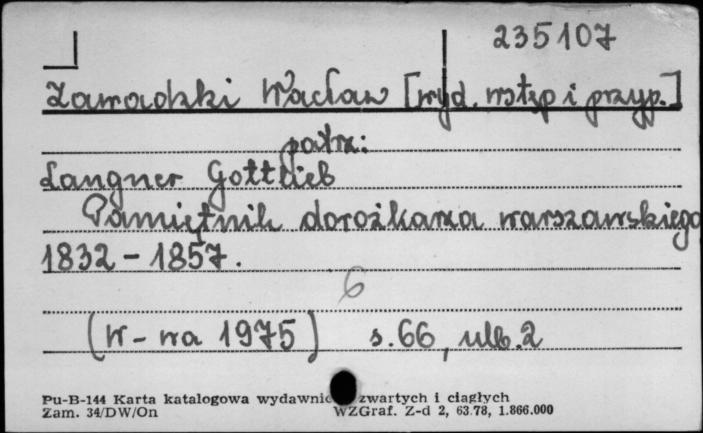 235107
Zawadzki Wacław [wyd. wstęp i przyp.]
patrz:
Langner Gottlieb
Pamiętnik dorożkarza warszawskiego
1832 - 1857.
6
(W-wa 1975) s. 66, ulb. 2
Pu-B-144 Karta katalogowa wydawnic zwartych i ciągłych
Zam. 34/DW/On WZGraf. Z-d 2, 63.78, 1.866.000